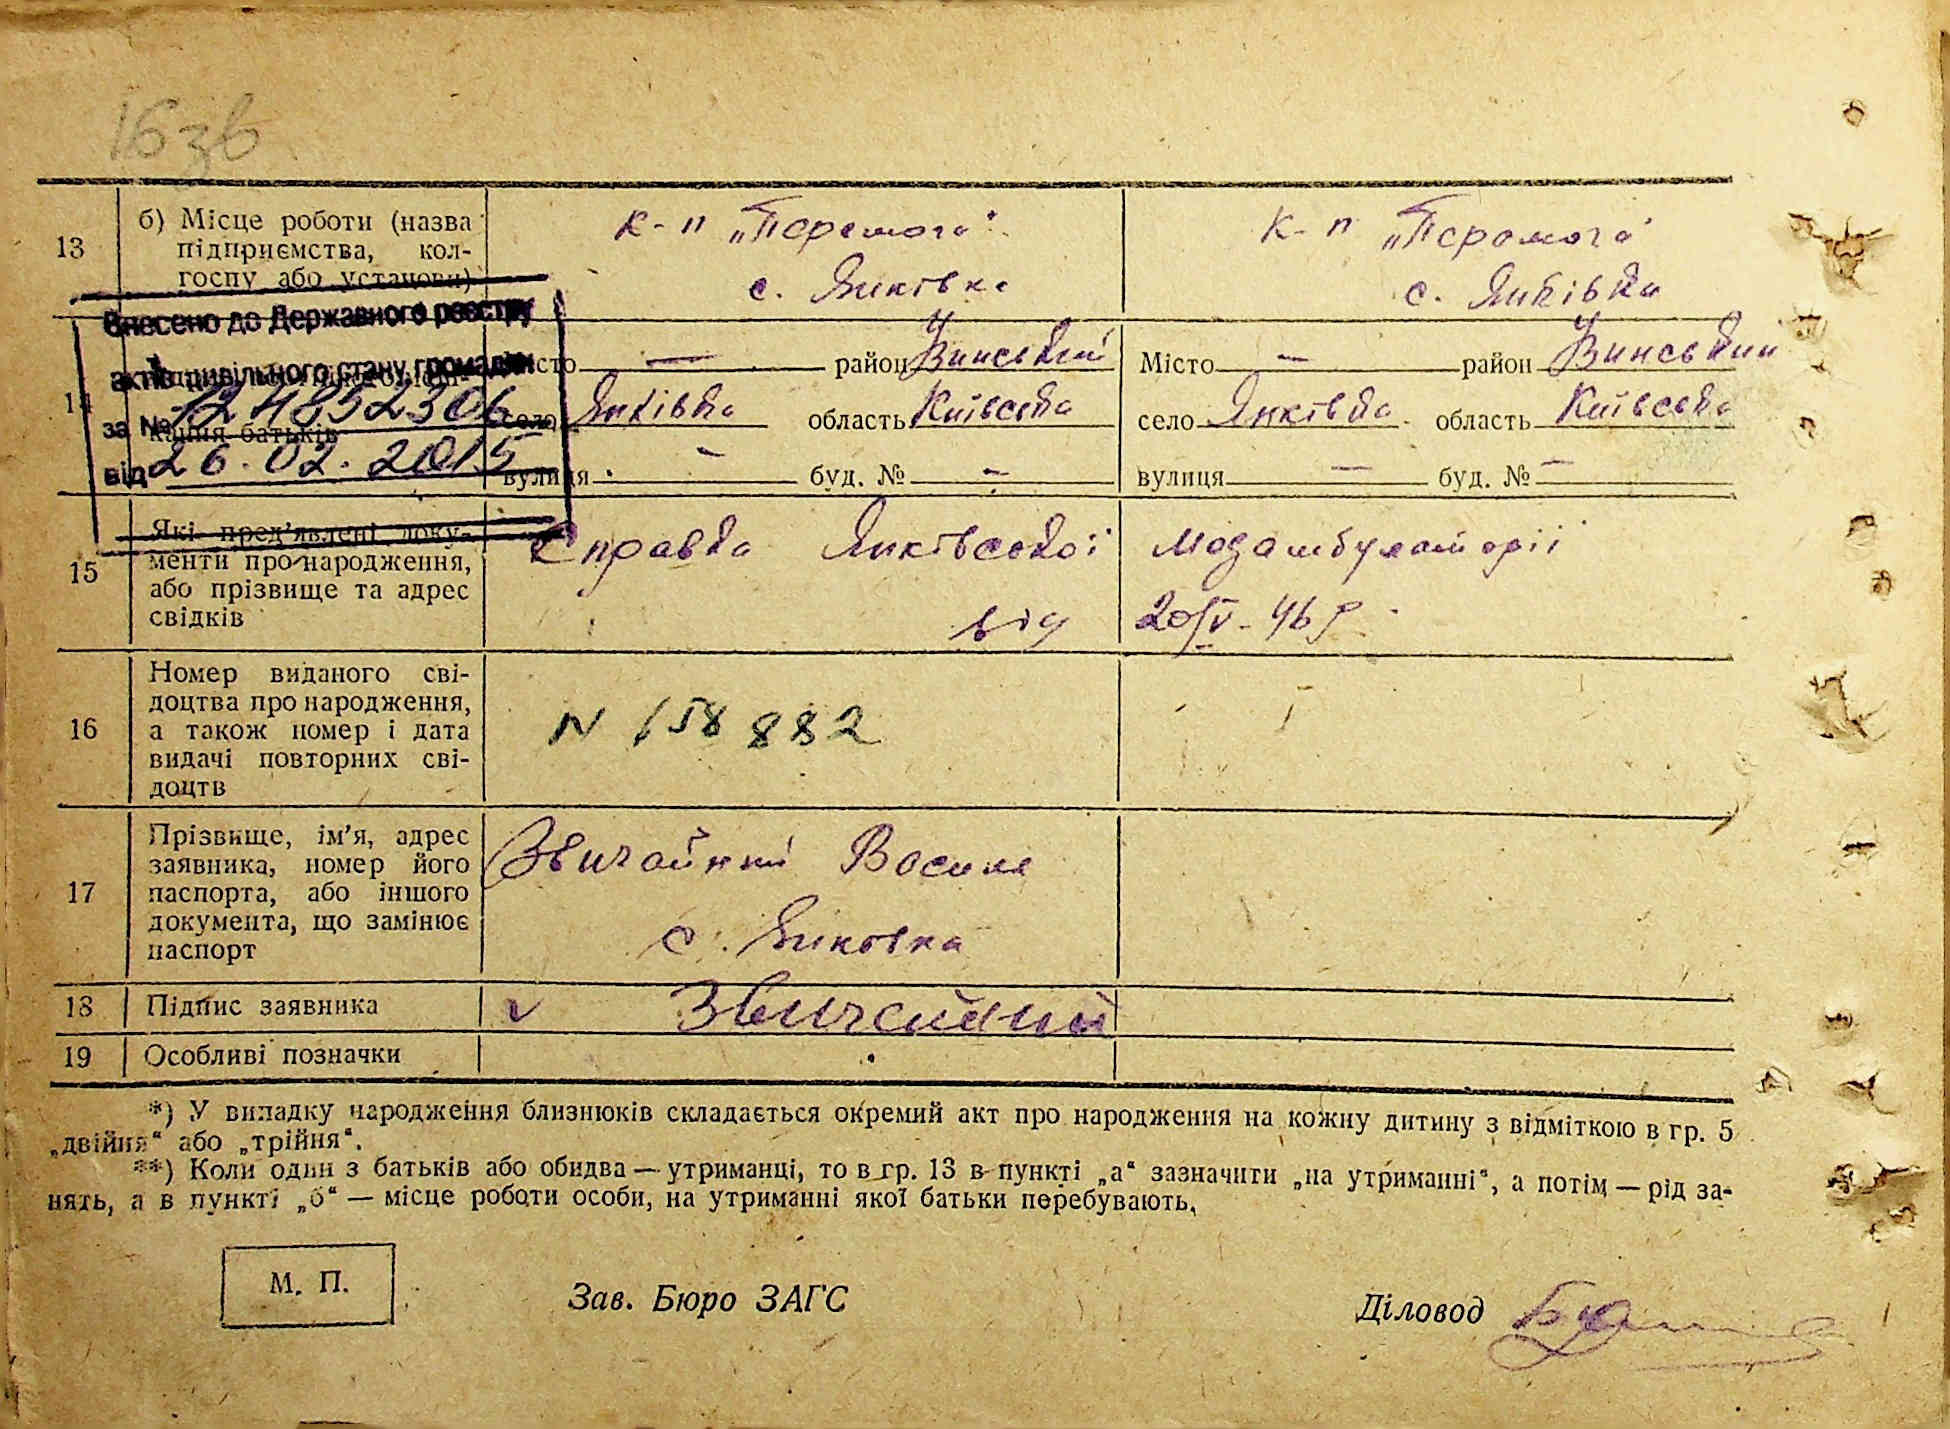 16зв
13
б) Місце роботи (назва
підприємства, кол-
госпу або установи)
к-п „Перемога"
с. Янківка
к-п „Перемога"
с. Янківка
Внесено до Державного реєстру
актів цивільного стану громадян
за № 12 4852306
від 26.02.2015
14
кання батьків
Місто — район
село Янківка область Київська
вулиця - буд. № -
Місто — район
село Янківка область Київська
вулиця — буд. № —
15
Які пред'явлені доку-
менти про народження,
або прізвище та адрес
свідків
Справка Янківської Медамбулаторії
від 20/IV-46 р.
16
Номер виданого сві-
доцтва про народження,
а також номер і дата
видачі повторних сві-
доцтв
N 158882
17
Прізвище, ім'я, адрес
заявника, номер його
паспорта, або іншого
документа, що замінює
паспорт
Звичайний Василь
с. Янковка
18
Підпис заявника
v Звичайний
19
Особливі позначки
*) У випадку народження близнюків складається окремий акт про народження на кожну дитину з відміткою в гр. 5
„двійня" або „трійня".
**) Коли один з батьків або обидва — утриманці, то в гр. 13 в пункті „а" зазначити „на утриманні", а потім — рід за-
нять, а в пункті „б" — місце роботи особи, на утриманні якої батьки перебувають.
М. П.
Зав. Бюро ЗАГС
Діловод